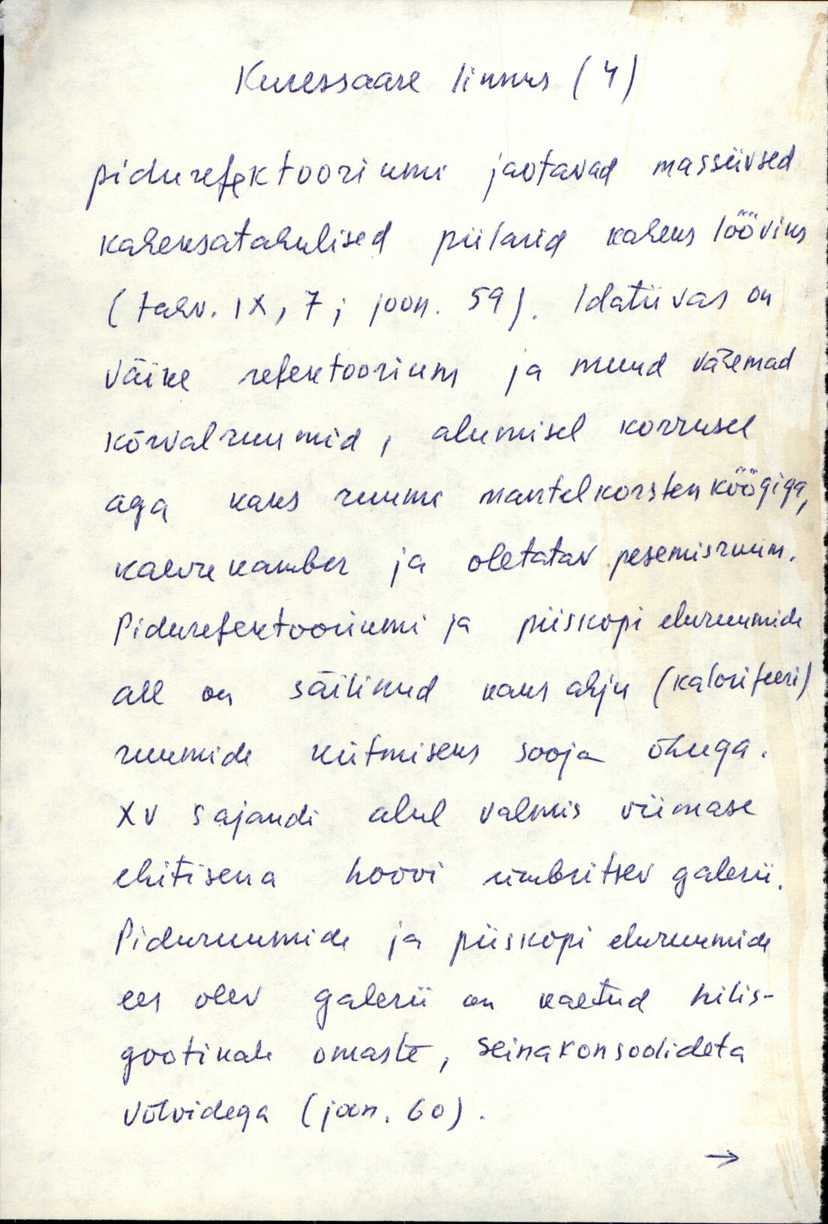 Kuressaare linnus (4)
pidurefektooriumi jaotavad massiivsed
kaheksatahulised piilarid kaheks lööviks
(tahv. IX, 7; joon. 59). Idatiivas on
väike refektoorium ja muud väiksemad
kõrvalruumid, alumisel korrusel
aga kaks ruumi mantelkorstenköögiga,
kaevukamber ja oletatav pesemisruum.
Pidurefektooriumi ja piiskopi eluruumide
all on säilinud kaks ahju (kalorifeeri)
ruumide kütmiseks sooja õhuga.
XV sajandi alul valmis viimase
ehitisena hoovi ümbritsev galerii.
Piduruumide ja piiskopi eluruumide
ees olev galerii on kaetud hilis-
gootikale omaste, seinakonsoolideta
võlvidega (joon. 60).
→